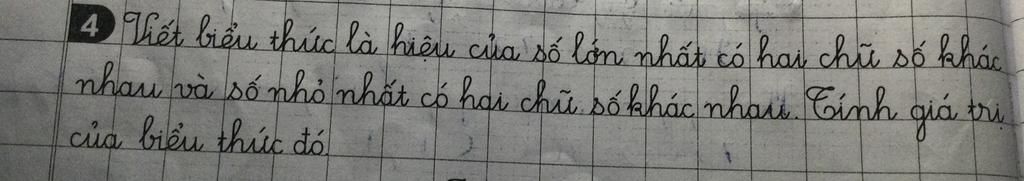 4 Viết biểu thức là hiệu của số lớn nhất có hai chữ số khác
nhau và số nhỏ nhất có hai chữ số khác nhau. Tính giá trị
của biểu thức đó.